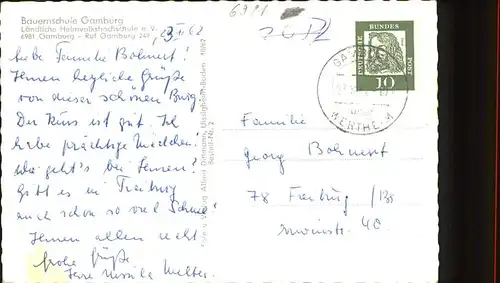 Bauernschule Gamburg
Ländliche Heimvolkshochschule e. V.
6981 Gamburg - Ruf Gamburg 249
62
liebe Familie Bohnert!
Ihnen herzliche Grüße
von dieser schönen Burg.
Der Kurs ist gut. Ich
habe prächtige Mädchen!
Wie geht's bei Ihnen?
Gibt es in Freiburg
auch schon so viel Schnee?
Ihnen allen recht
frohe Grüße
Ihre Walter
Foto u. Verlag Albert Dittmann, Uissigheim-Baden
Bestell-Nr. 2
6981
DEUTSCHE BUNDESPOST
10
WERTHEIM
Familie
Georg Bohnert
78 Freiburg/Br
40